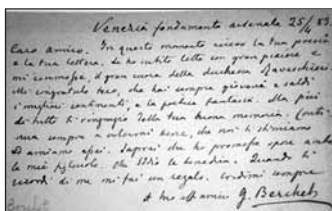 Venezia fondamenta arsenale 25/4 83.
Caro amico. In questo momento ricevo la tua poesia
e la tua lettera. Se ho subito letto con gran piacere e
mi commosse, il gran cuore della duchessa Ravaschieri.
Mi congratulo teco, che hai sempre giovani e saldi
i migliori sentimenti, e la poetica fantasia. Ma più
di tutto ti ringrazio della tua buona memoria. Conti-
nua sempre a volermi bene, che noi ti stimiamo
ed amiamo assai. Saprai che ho promessa sposa anche
la mia figliuola. Che Iddio la benedica. Quando ti
ricordi di me mi fai un regalo. Credimi sempre
il tuo aff amico G. Berchet